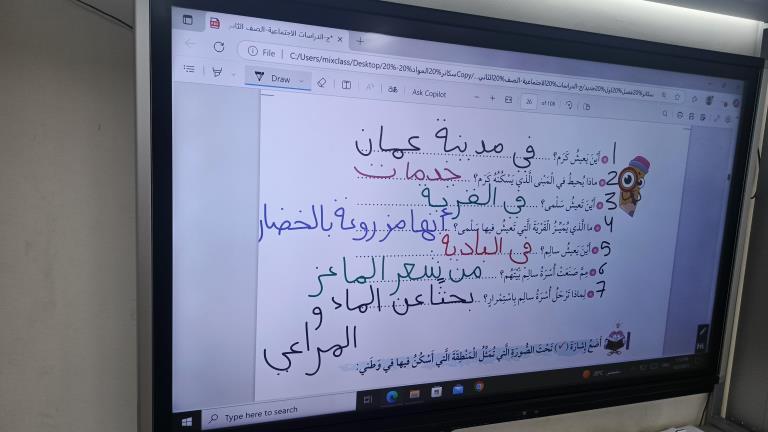 ج-الدراسات الاجتماعية-الصف الثاني
File
C:/Users/mixclass/Desktop/20%
Draw
Ask Copilot
26 of 108
1 أَيْنَ يَعيشُ كَرَم؟ في مدينة عمان
2 ماذا يُحيطُ في الْمَبْنى الَّذي يَسْكُنُهُ كَرَم؟ خدمات
3 أَيْنَ تَعيشُ سَلْمى؟ في القرية
4 ما الَّذي يُمَيِّزُ الْقَرْيَةَ الَّتي تَعيشُ فيها سَلْمى؟ أنها مزروعة بالخضار
5 أَيْنَ يَعيشُ سالِم؟ في البادية
6 مِمَّ صَنَعَتْ أُسْرَةُ سالِم بَيْتَهُم؟ من شعر الماعز
7 لِماذا تَرْحَلُ أُسْرَةُ سالِم بِاسْتِمْرارٍ؟ بحثًا عن الماء و
المراعي
أَضَعُ إِشارَةَ (✓) تَحْتَ الصُّورَةِ الَّتي تُمَثِّلُ الْمَنْطِقَةَ الَّتي أَسْكُنُ فيها في وَطَني:
Type here to search